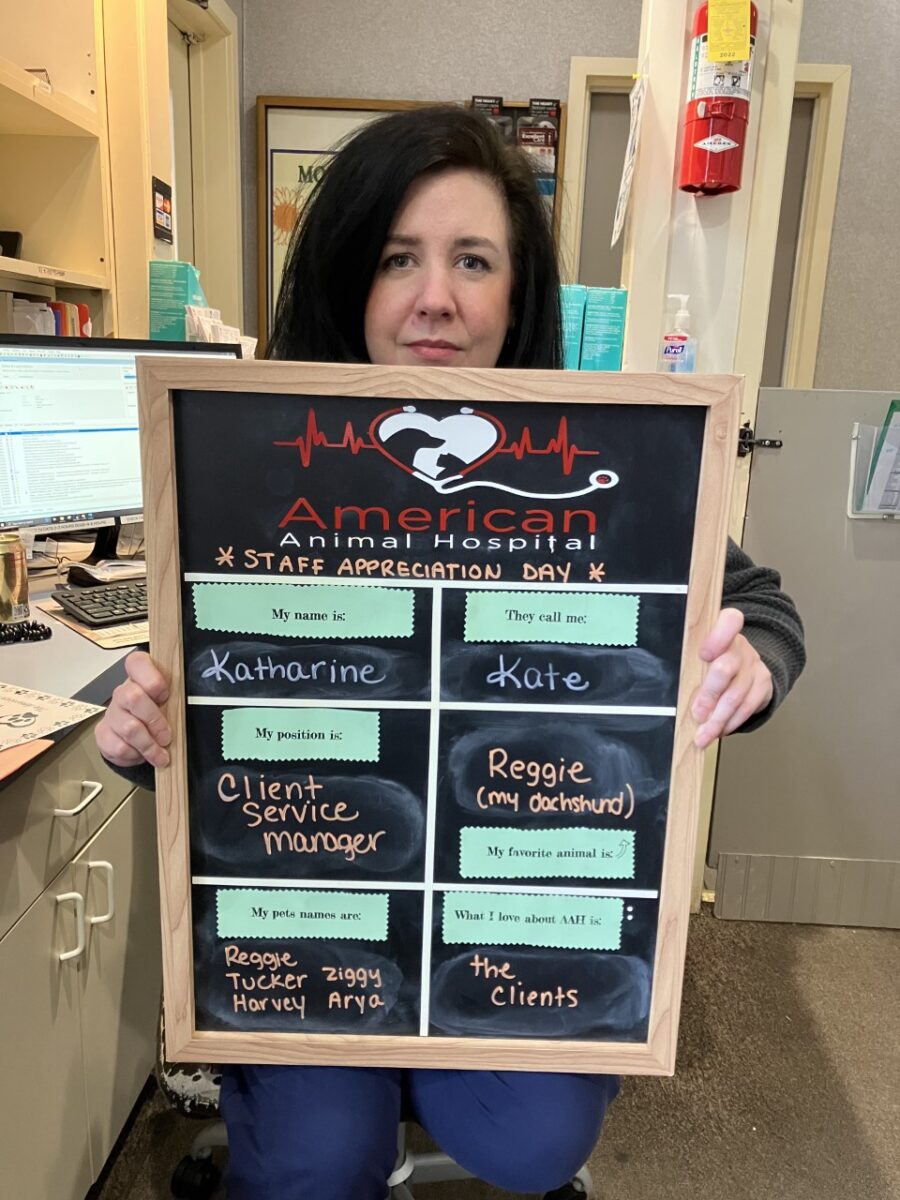 MO
2022
AMEREX
Purell
American
Animal Hospital
* STAFF APPRECIATION DAY *
My name is:
Katharine
They call me:
Kate
My position is:
Client
Service
manager
Reggie
(my dachshund)
My favorite animal is:
My pets names are:
Reggie
Tucker Ziggy
Harvey Arya
What I love about AAH is:
the
Clients